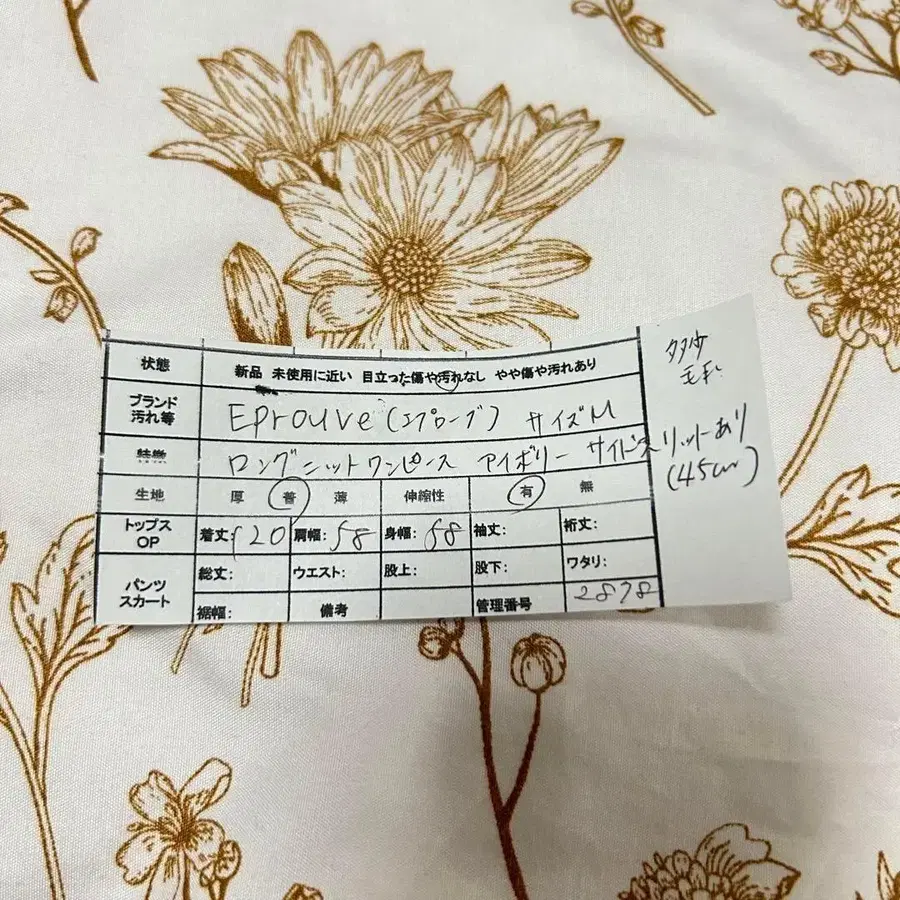 状態 新品 未使用に近い 目立った傷や汚れなし やや傷や汚れあり
ブランド 汚れ等 Eprouve (エプローブ) サイズM
多少
特徴 ロングニットワンピース アイボリー サイドスリットあり
(45cm)
生地 厚 普 薄 伸縮性 有 無
トップス OP 着丈: 120 肩幅: 58 身幅: 58 袖丈: 裄丈:
パンツ スカート 総丈: ウエスト: 股上: 股下: ワタリ:
裾幅: 備考 管理番号 2878